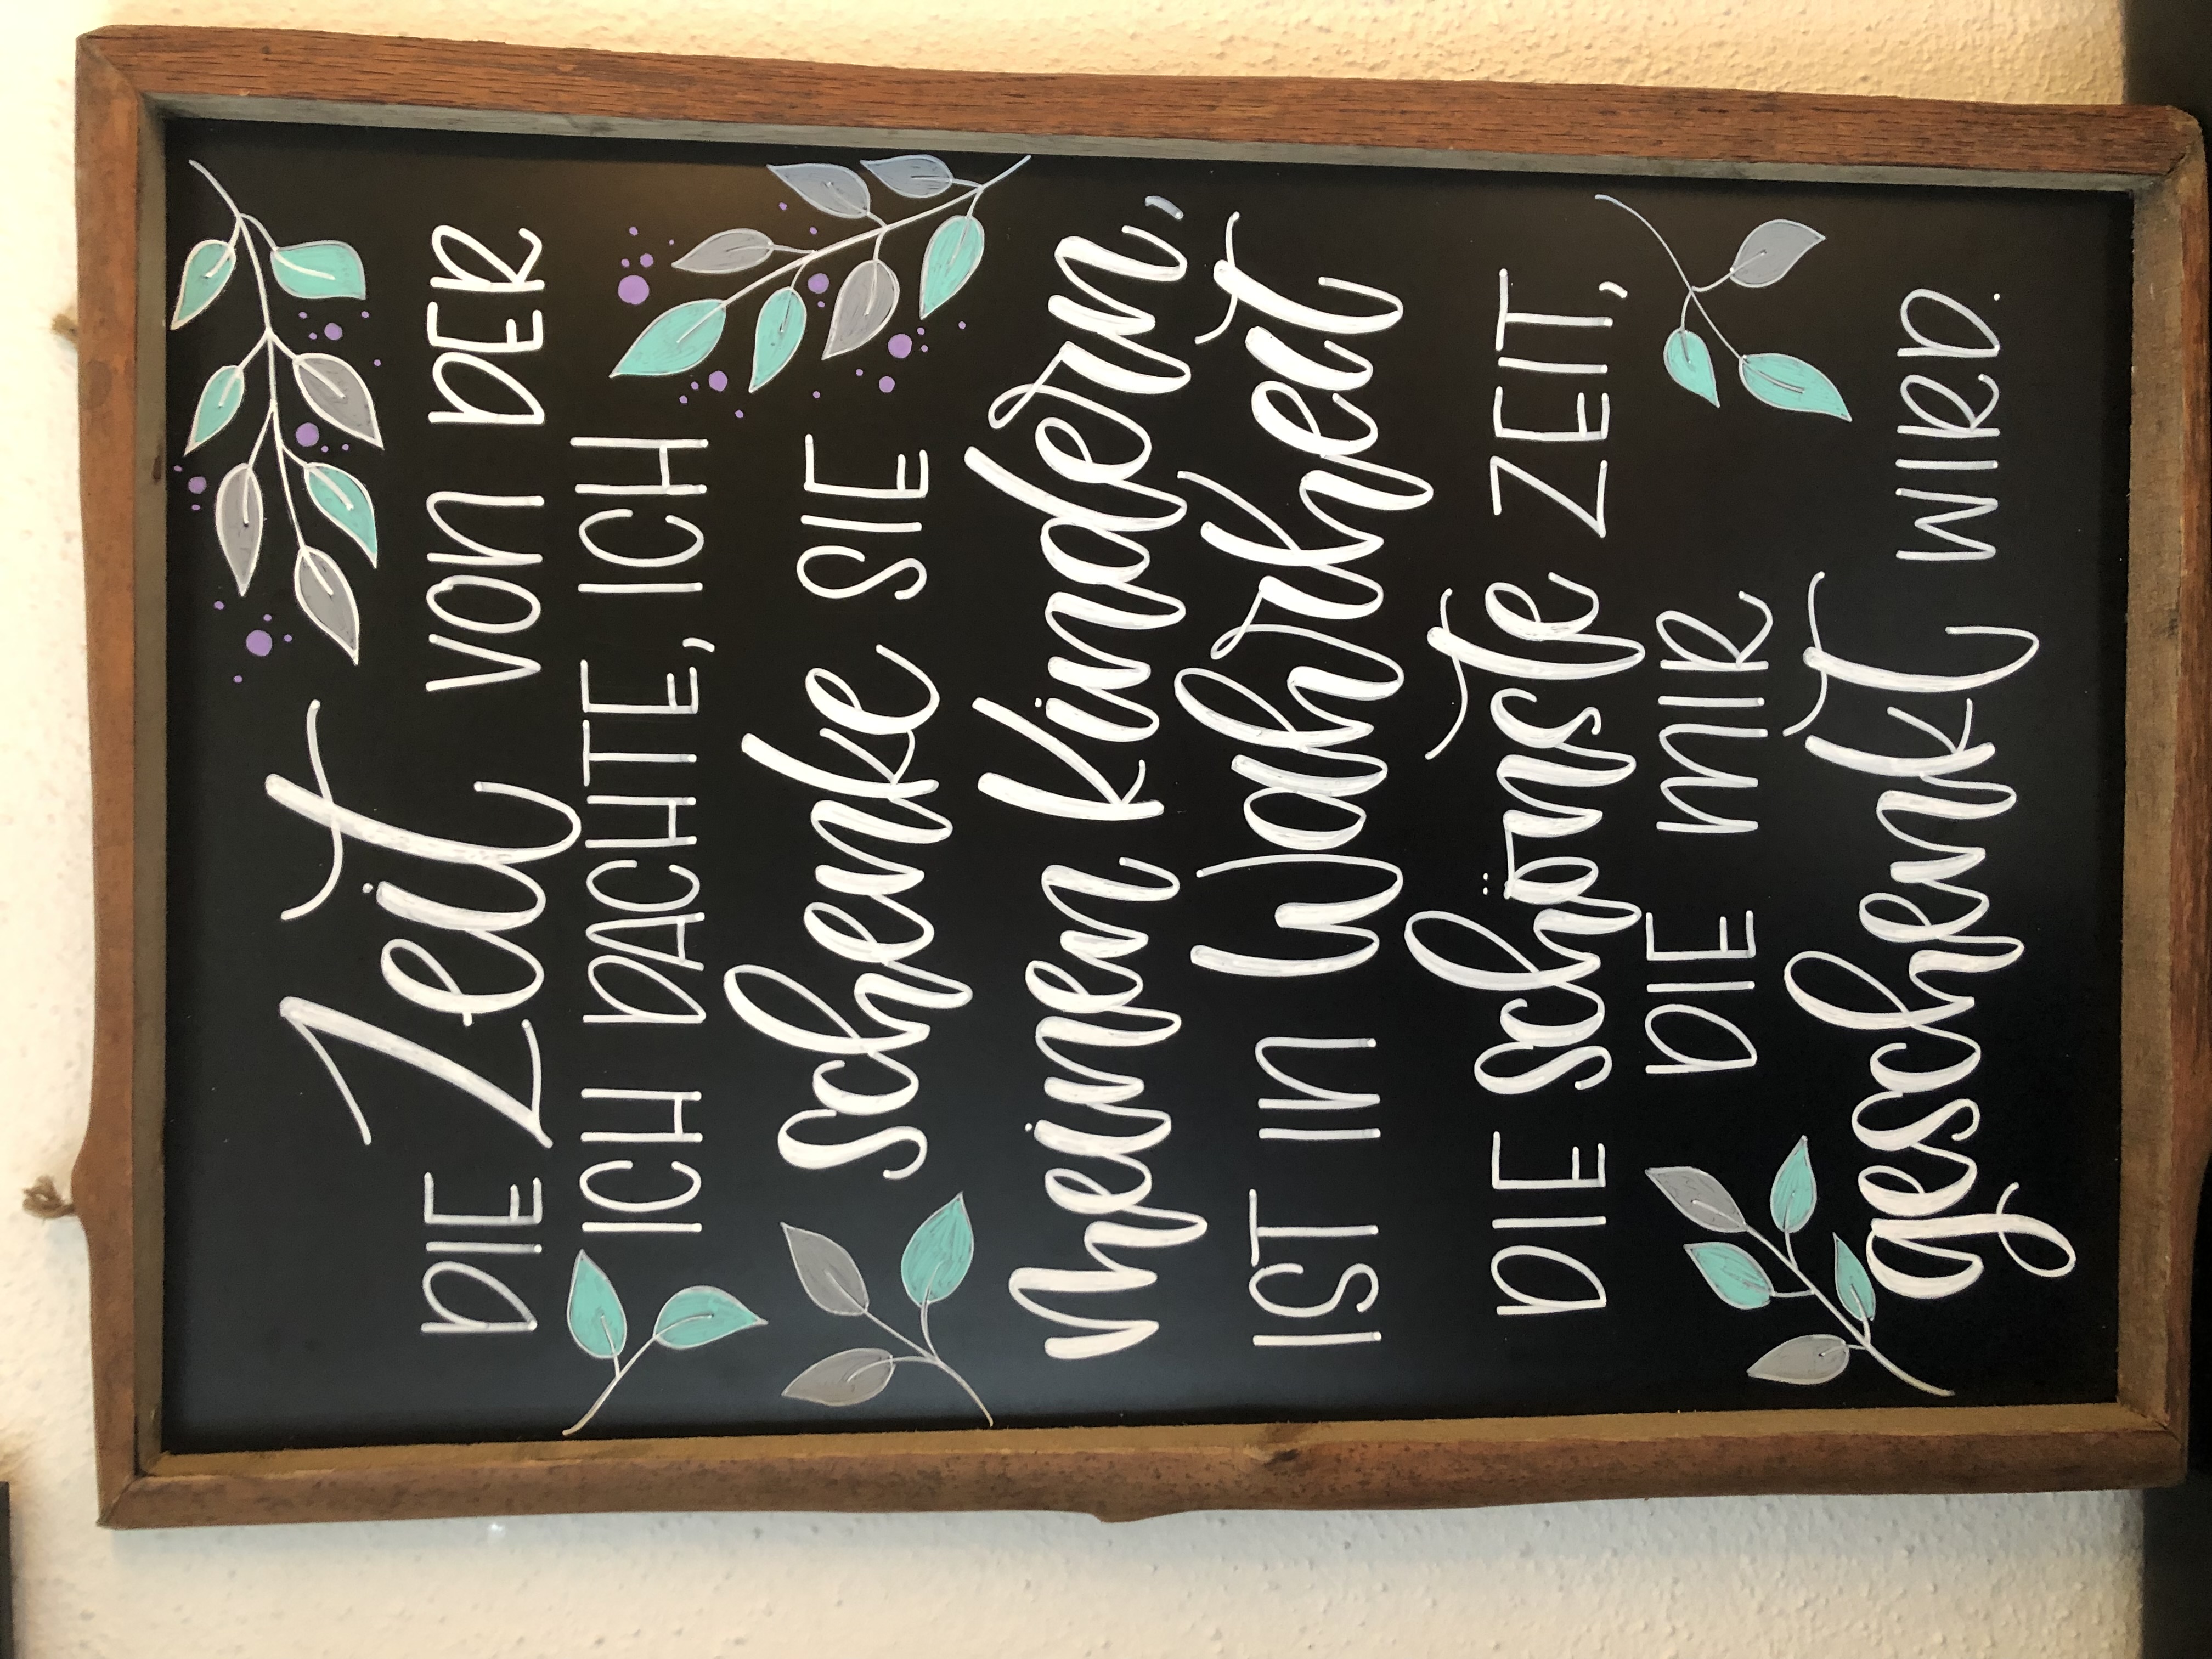 DIE Zeit VON DER
ICH DACHTE, ICH
schenke SIE
meinen Kindern,
IST IN Wahrheit
DIE schönste ZEIT,
DIE MIR
geschenkt WIRD.